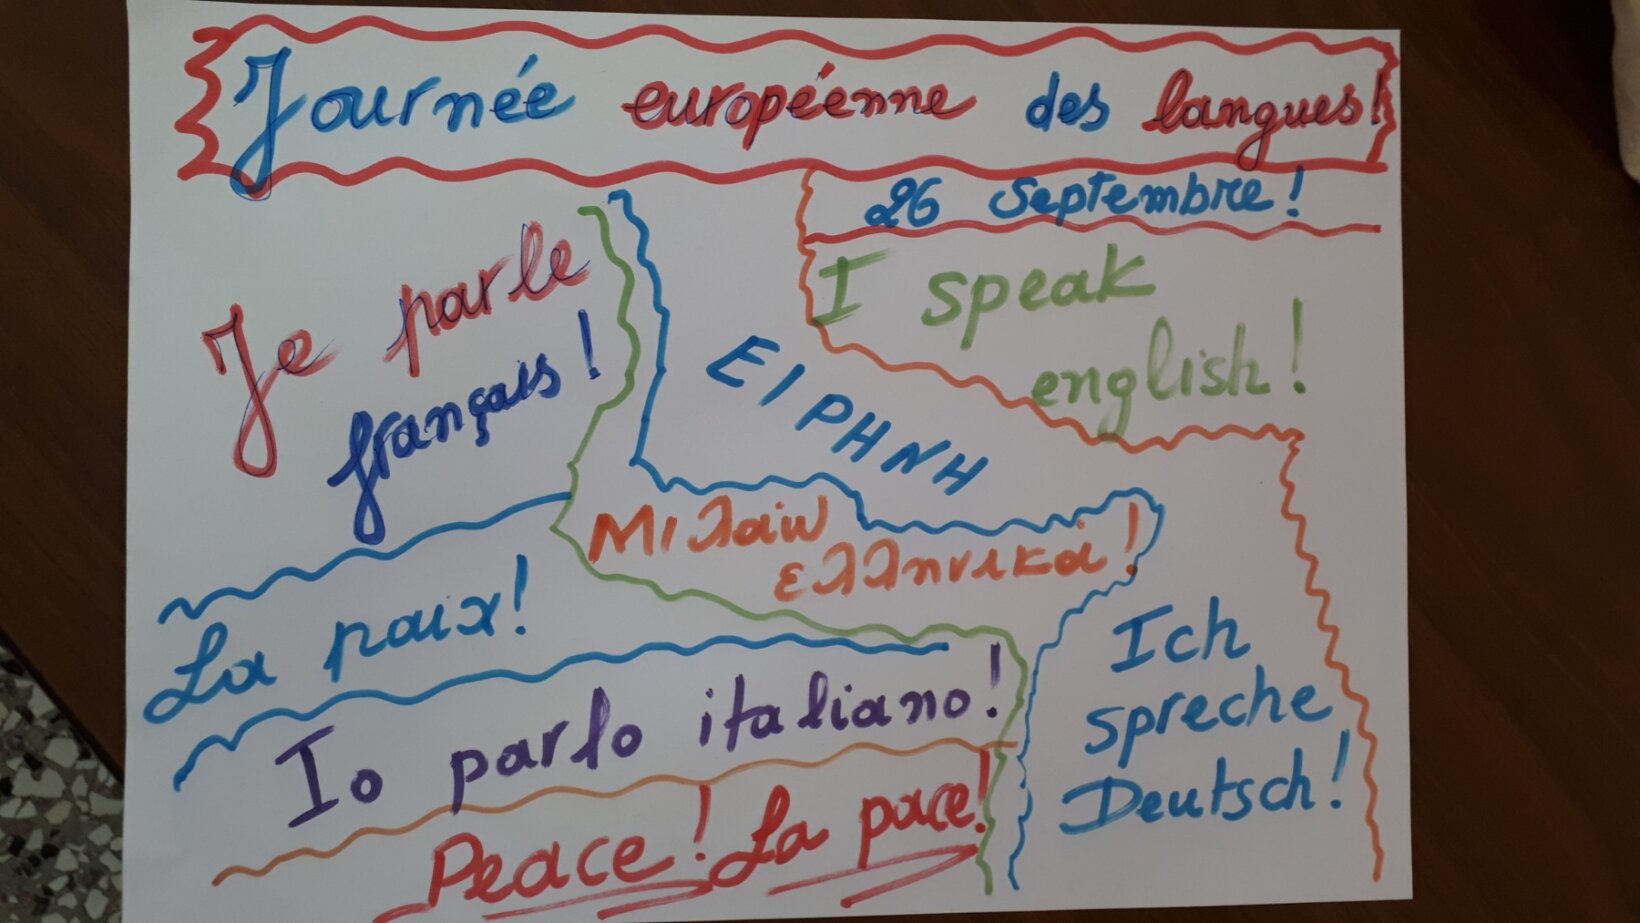 Journée européenne des langues!
26 Septembre!
Je parle
français!
I speak
english!
ΕΙΡΗΝΗ
Μιλάω
ελληνικά!
La paix!
Io parlo italiano!
Ich
spreche
Deutsch!
Peace! La pace!